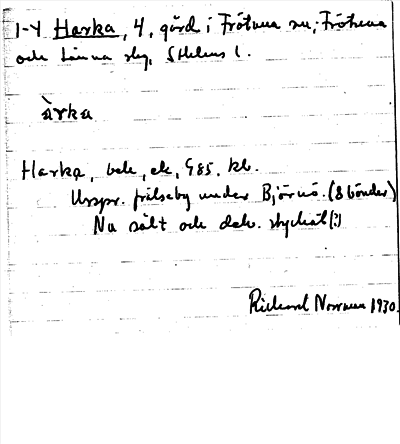 1-4 Harka, 4, gård i Frötuna sn; Frötuna
och Länna skg, Sthlms l.
àrka
Harka, bek, ek, G85, kb.
Urspr. frälseby under Björnö. (8 bönder)
Nu sålt och delv. styckat (?)
Rickard Norrman 1930.